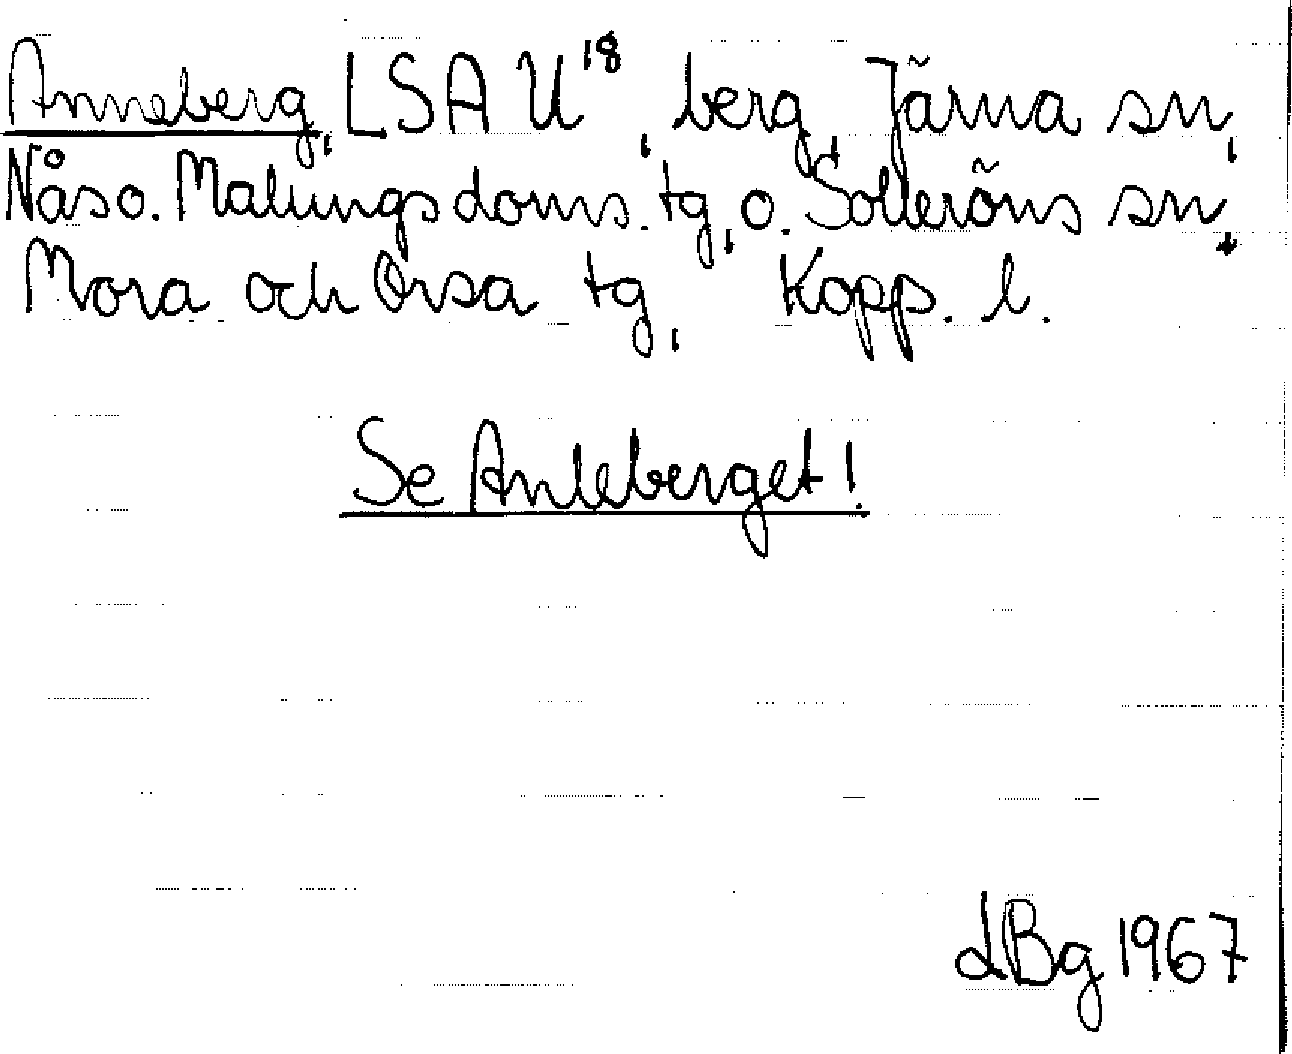 Anneberg, LSA U¹⁸, berg, Järna sn,
Nås o. Malungs doms. tg, o. Solleröns sn,
Mora och Orsa tg, Kopp. l.
Se Ankeberget!
LBg 1967